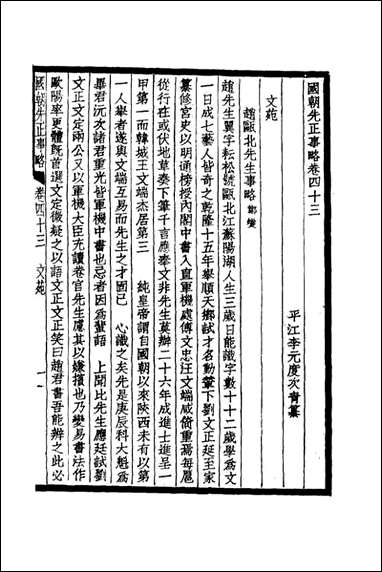 國朝先正事略卷四十三
平江李元度次青纂
文苑
趙甌北先生事略
趙先生翼字耘松號甌北江蘇陽湖人生三歲日能識字數十十二歲學爲文
一日成七藝人皆奇之乾隆十五年舉順天鄉試才名動輦下劉文正延至家
纂修宮史以明通榜授內閣中書入直軍機處傅文忠汪文端咸倚重焉每扈
從行在或伏地草奏下筆千言應奉文非先生莫辦二十六年成進士進呈一
甲第一而韓城王文端杰居第三　純皇帝謂自國朝以來陝西未有以第
一人舉者遂與文端互易而先生之才固已　心識之矣先是庚辰科大魁爲
畢君沅次諸君重光皆軍機中書也忌者因爲蜚語　上聞比先生應廷試劉
文正文定兩公又以軍機大臣充讀卷官先生慮其以嫌擯也乃變易書法作
歐陽率更體既首選文定微疑之以語文正文正笑曰趙君書吾能辨之此必
國朝先正事略　卷四十三　文苑　一